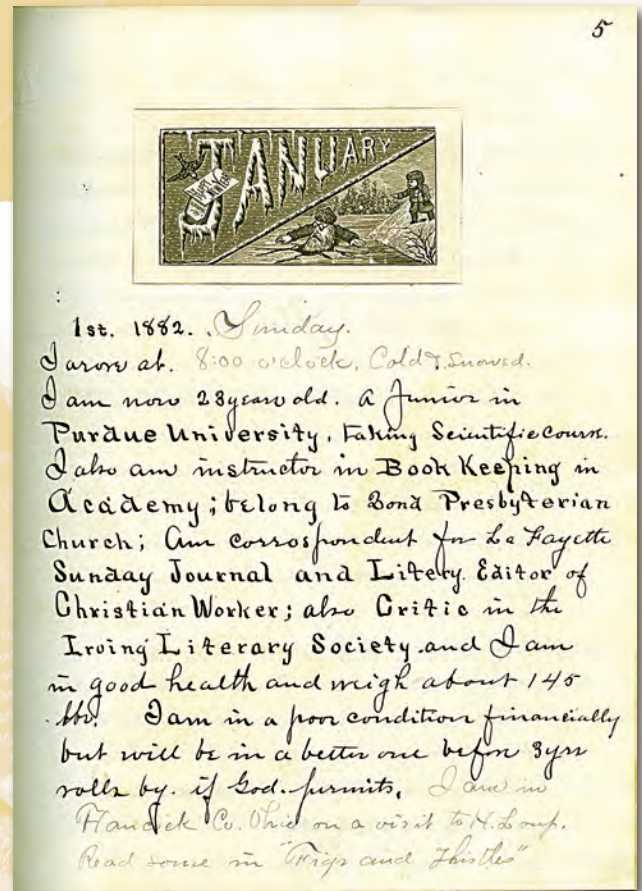 5
JANUARY
1st. 1882. Sunday.
I arose at. 8:00 o'clock, Cold & Snowed.
I am now 23 years old. A Junior in
Purdue University, taking Scientific course.
I also am instructor in Book Keeping in
Academy; belong to 2ond Presbyterian
Church; Am corrospondent for La Fayette
Sunday Journal and Litery. Editor of
Christian Worker; also Critic in the
Irving Literary Society and I am
in good health and weigh about 145
lbs. I am in a poor condition financially
but will be in a better one before 3yrs
rolls by. if God. permits, I am in
Co. Ohio on a visit to H. Loup.
Read some in "Figs and Thistles"